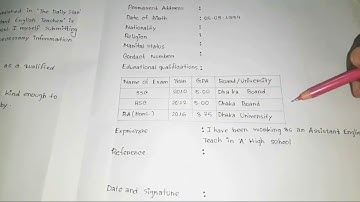 Permanent Address :
ublished in 'The Daily Star'
Date of Birth : 05.05.1994
ant English Teacher" is
Nationality :
ool I myself submitting
Religion :
necessary information.
Marital status :
Contact Numbers :
Educational qualifications:
as a qualified
Name of Exam Year GPA Board/University
SSC 2010 5.00 Dhaka Board
kind enough to
HSC 2012 5.00 Dhaka Board
by.
BA (Hons.) 2016 3.75 Dhaka University
Experience : I have been working as an Assistant Engli
Teach in 'A' High school
Reference :
Date and signature :